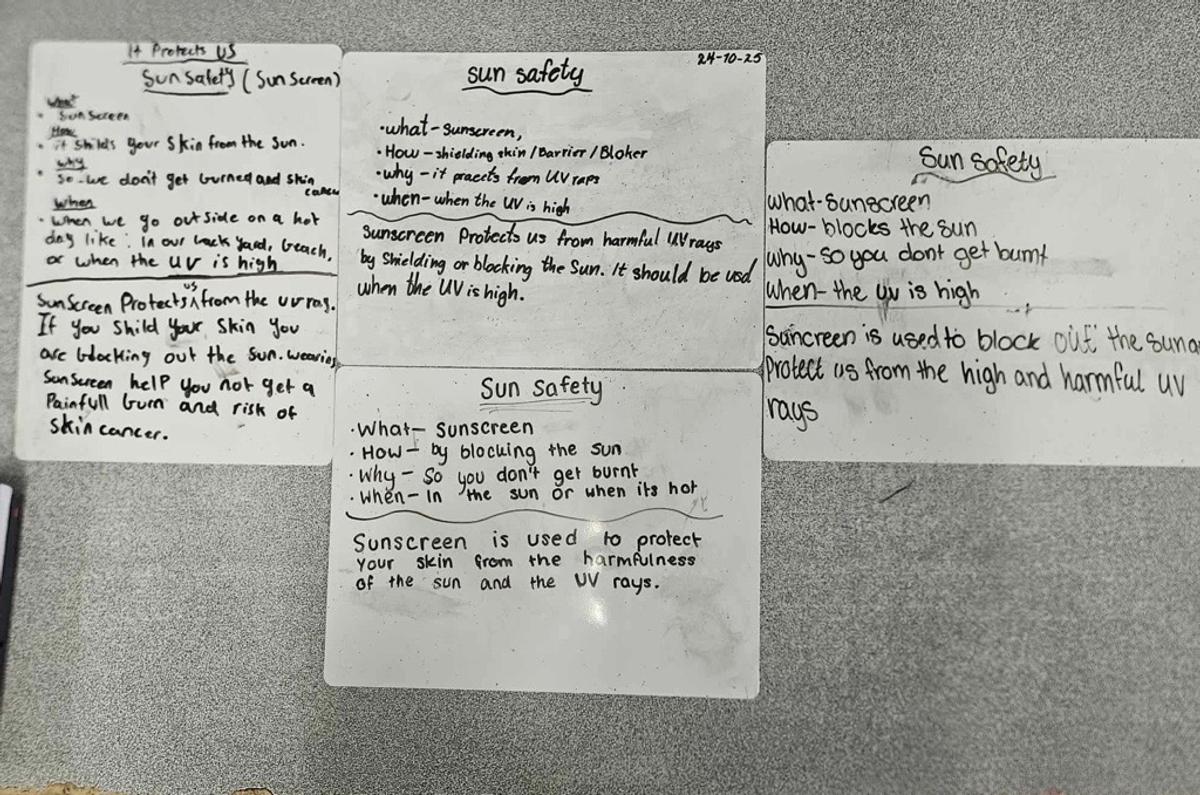 It Protects US
Sun Safety (Sun Screen)
What
• Sun Screen
How
• it Shilds your Skin from the Sun.
why
• So we don't get burned and skin
cancer
When
• When we go outside on a hot
day like: In our back yard, beach,
or when the UV is high
us
Sun Screen Protects ^ from the uv ray.
If You Shild Your Skin You
are blocking out the Sun. wearing
Sun Screen help You not get a
Painfull burn and risk of
Skin cancer.
24-10-25
sun safety
•what-Sunscreen,
•How-shielding skin/Barrier/Bloker
•why-it pracets from UV raps
•when-when the UV is high
Sunscreen Protects us from harmful UV rays
by Shielding or blocking the Sun. It should be usd
when the UV is high.
Sun Safety
•What- Sunscreen
•How- by blocking the sun
•Why- So you don't get burnt
•When- In the sun or when its hot
Sunscreen is used to protect
your skin from the harmfulness
of the sun and the UV rays.
Sun safety
what-sunscreen
How- blocks the sun
why-so you dont get burnt
when- the uv is high
Suncreen is used to block out the sun a
Protect us from the high and harmful UV
rays